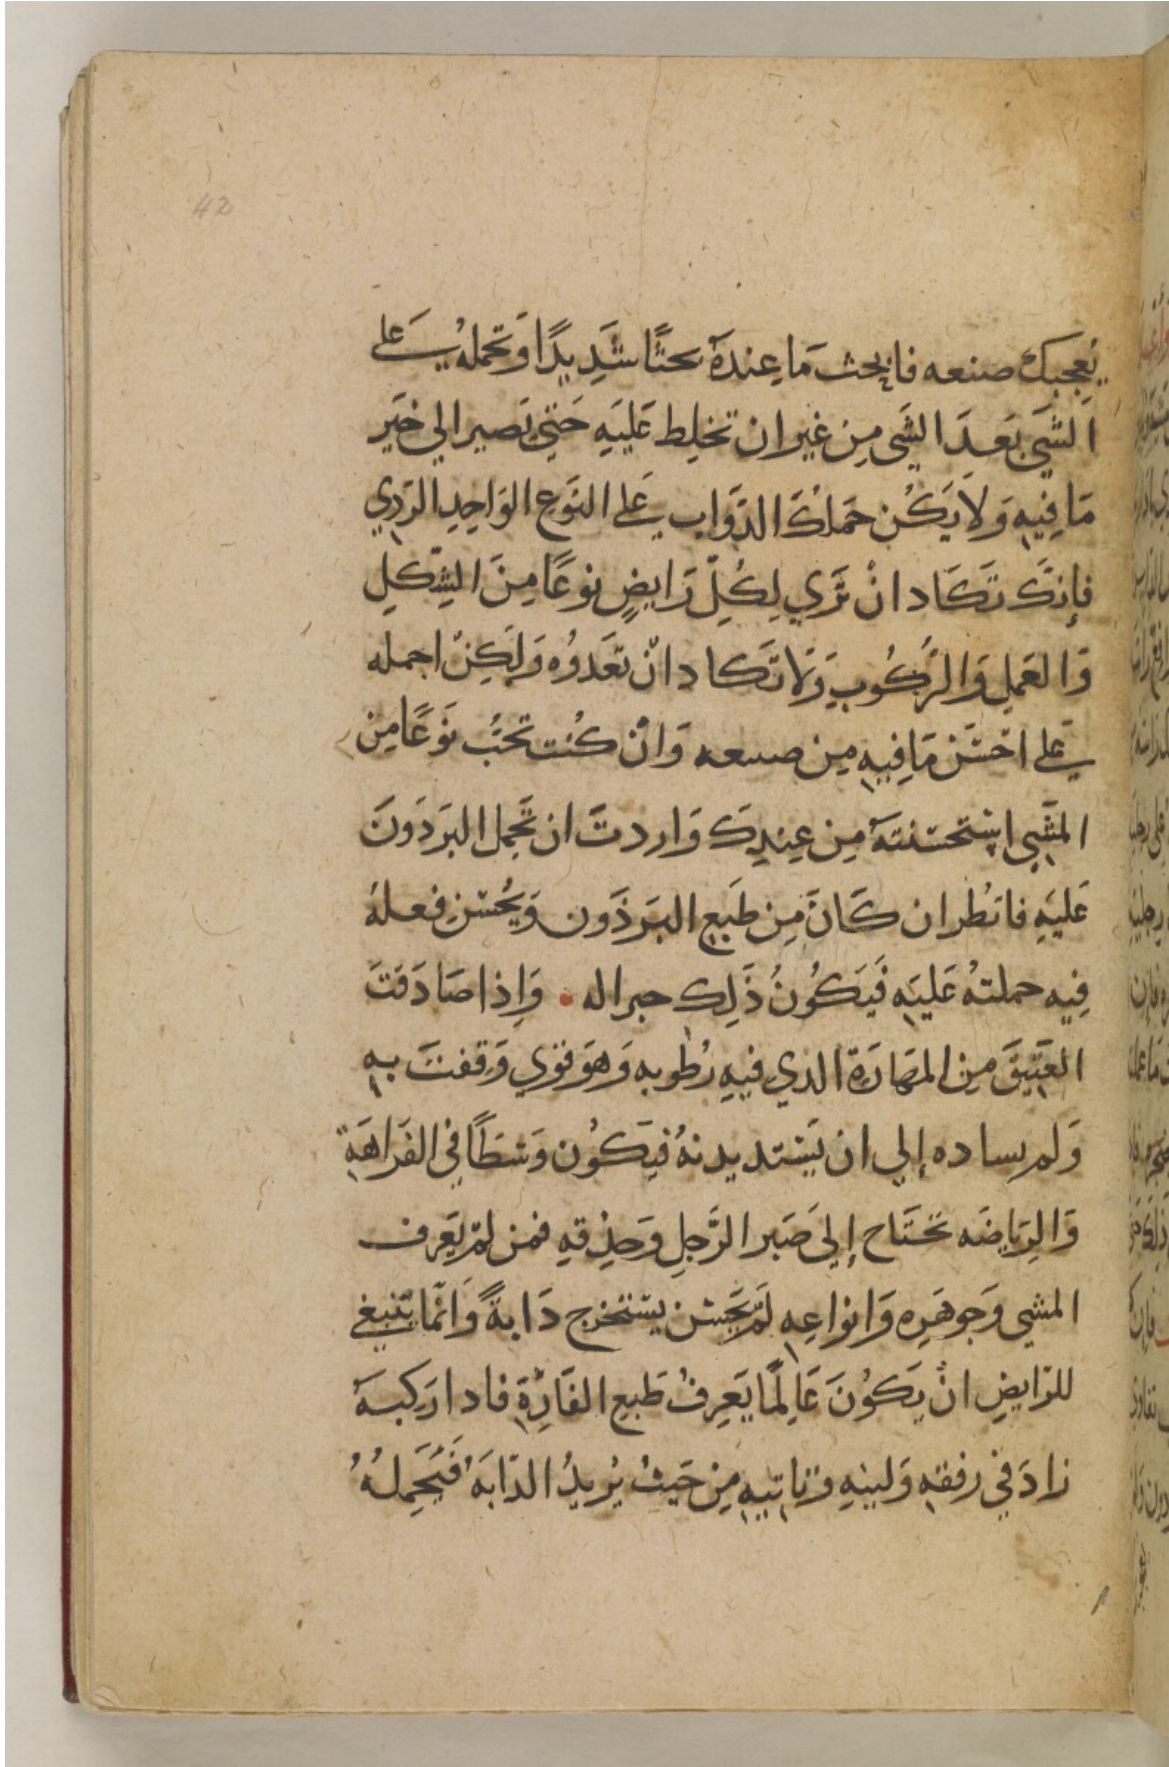 42
يُعجبك صنعه فابحث مَا عِندهَ بحثًا شَدِيدًا وَتحملهُ عَلي
الشَّي بَعدَ الشَّي مِن غير ان تخلِط عَليَهِ حَتي تصير الي خيَر
مَا فِيهِ وَلاَ يَكُن حَملكَ الدوَاب عَلي النوَع الوَاحِدِ الرَدِي
فإنكَ تَكَاد انْ تَرَي لِكُلِّ رَايضٍ نوعًا مِنَ الشِكلِ
وَالعَملِ وَالرُكُوبِ وَلَا تكاد انْ تعَدوُه وَلَكِنْ احمله
عَلي احْسَن مَا فِيهِ مِن صىىعه وَانْ كُنت تحبُ نَوعًا مِن
المَشَيِ استحسَنتهَ مِن عِندِكَ وَاردتَ ان تَحمِل البرَدَونَ
عَليَهِ فانظُر ان كَانَ مِن طَبعِ البَرذَون وَيحُسَن فعلهُ
فِيه حملتهُ عَليَهِ فَيَكُونُ ذَلِك حىرا له . وَاِذا صَادَفتَ
العَتِيقَ مِن المَهَارَةِ الدي فيهِ رُطوبه وَهوَ قوي وَقفتَ بهِ
وَلم إلي ان يَشتد بدنهُ فيَكُون وَسَطًا في الفَراهَةِ
وَالِريَاضَه تحتَاح إلى صَبر الرَّجلِ وَحِذقهِ فمن لمْ يَعَرِف
المشي وَجوهَرِه وَانواعِهِ لَمْ يَحسَن يستخرج دَابةً وَانمَّا يَنبغي
للرّايضِ انْ يَكوُنَ عَالِمًا يَعرِفُ طبعِ الفَارِةِ فادا رَكبهَ
زادَ في رفقهِ وَلينهِ وَتاتيهِ مِن حَيثُ يُريدُ الدّابَهُ فَيَحَمِلهُ